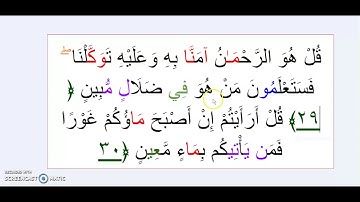 قُلْ هُوَ الرَّحْمَـٰنُ آمَنَّا بِهِ وَعَلَيْهِ تَوَكَّلْنَا ۖ
فَسَتَعْلَمُونَ مَنْ هُوَ فِي ضَلَالٍ مُّبِينٍ ﴿
٢٩﴾ قُلْ أَرَأَيْتُمْ إِنْ أَصْبَحَ مَاؤُكُمْ غَوْرًا
فَمَن يَأْتِيكُم بِمَاءٍ مَّعِينٍ ﴿٣٠﴾
RECORDED WITH
SCREENCAST MATIC